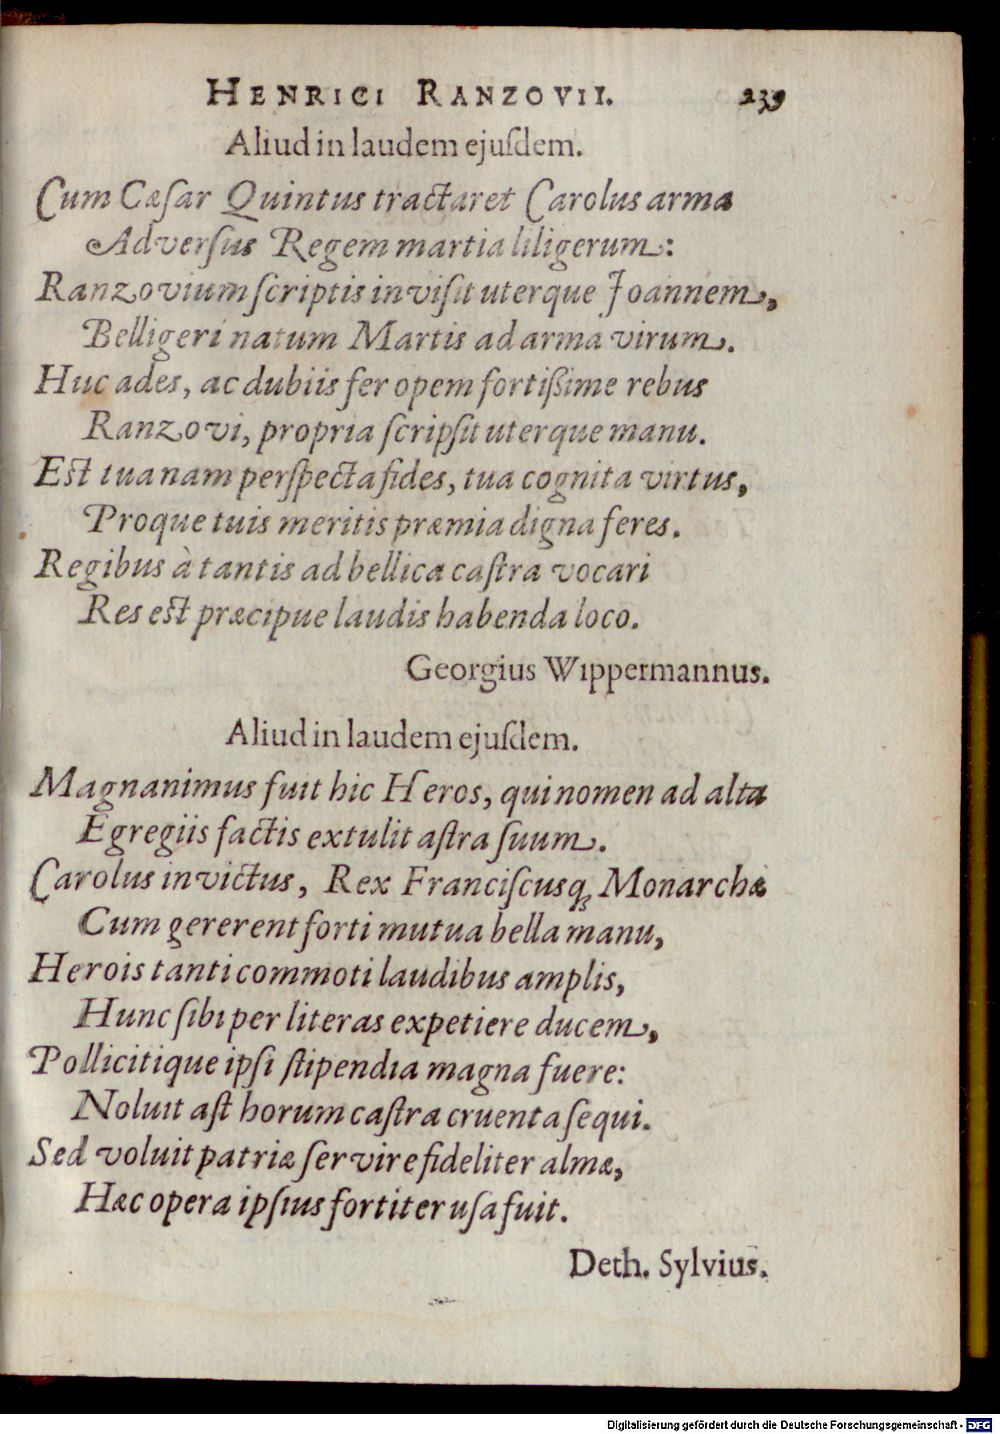 HENRICI RANZOVII. 239
Aliud in laudem ejuſdem.
Cum Cæſar Quintus tractaret Carolus arma
Adverſus Regem martia liligerum:
Ranzovium ſcriptis inviſit uterque Joannem,
Belligeri natum Martis ad arma virum.
Huc ades, ac dubiis fer opem fortißime rebus
Ranzovi, propria ſcripſit uterque manu.
Est tua nam perſpecta fides, tua cognita virtus,
Proque tuis meritis præmia digna feres.
Regibus à tantis ad bellica caſtra vocari
Res est præcipue laudis habenda loco.
Georgius Wippermannus.
Aliud in laudem ejuſdem.
Magnanimus fuit hic Heros, qui nomen ad alta
Egregiis factis extulit aſtra ſuum.
Carolus invictus, Rex Franciſcusq; Monarchæ
Cum gererent forti mutua bella manu,
Herois tanti commoti laudibus amplis,
Hunc ſibi per literas expetiere ducem,
Pollicitique ipſi ſtipendia magna fuere:
Noluit aſt horum caſtra cruenta ſequi.
Sed voluit patriæ ſervire fideliter almæ,
Hæc opera ipſius fortiter uſa fuit.
Deth. Sylvius.
Digitalisierung gefördert durch die Deutsche Forschungsgemeinschaft - DFG